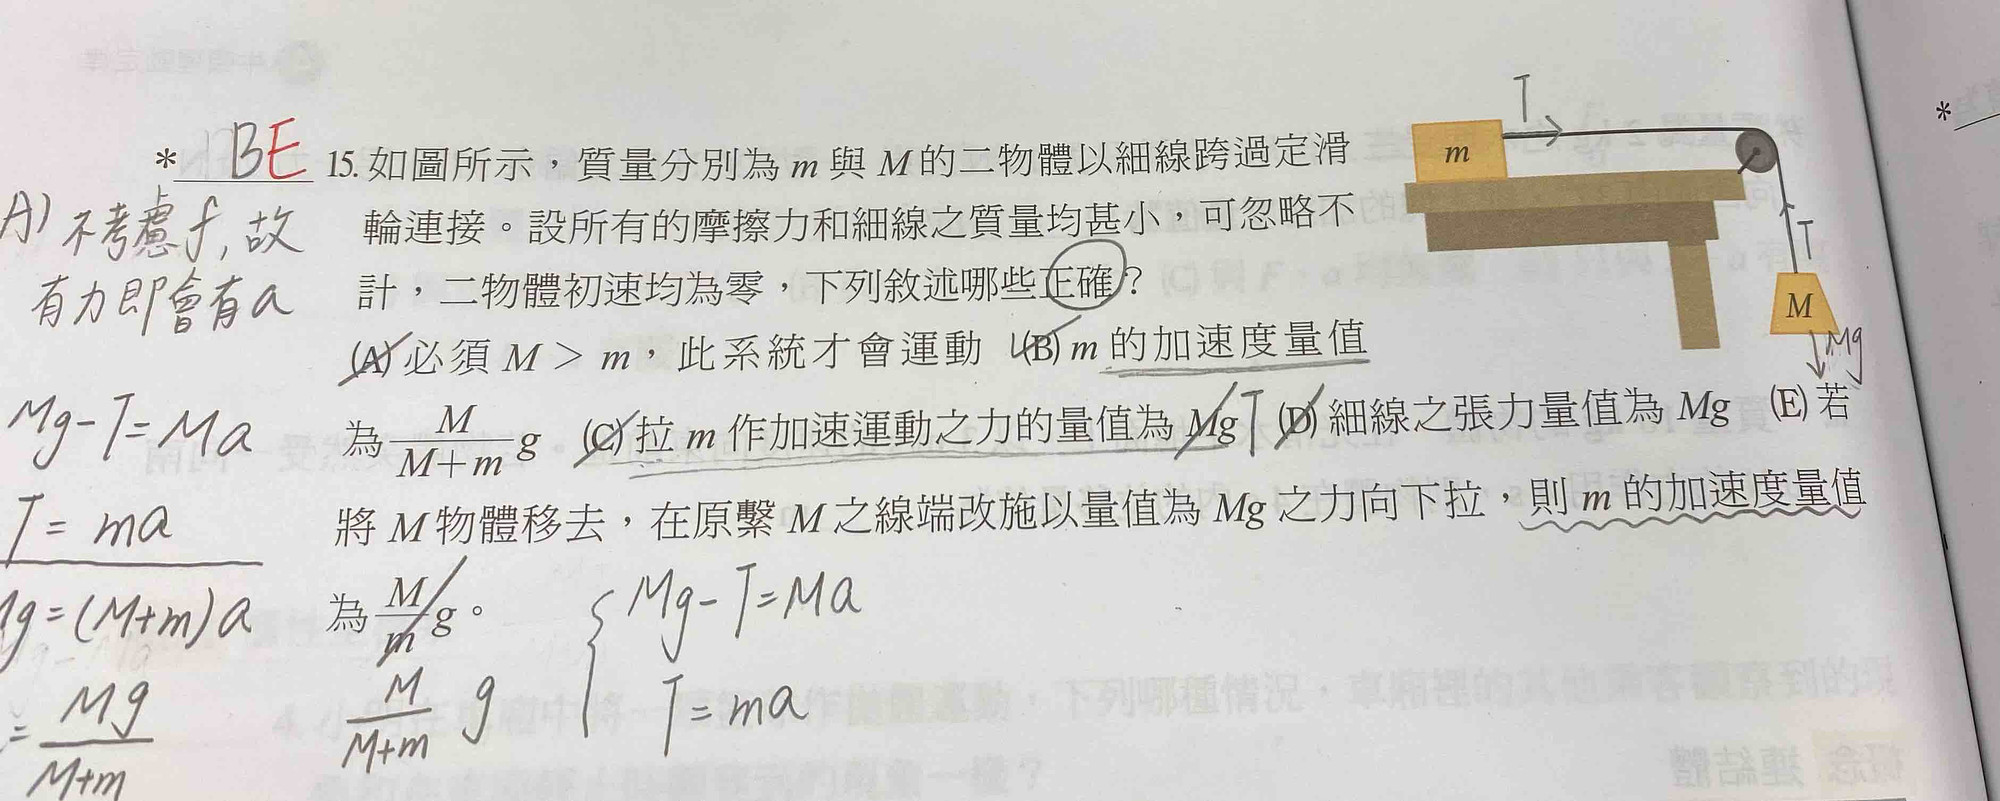 * BE 15. 如圖所示，質量分別為 m 與 M 的二物體以細線跨過定滑
輪連接。設所有的摩擦力和細線之質量均甚小，可忽略不
計，二物體初速均為零，下列敘述哪些正確？
(A) 必須 M > m，此系統才會運動 (B) m 的加速度量值
為 M/(M+m) g (C) 拉 m 作加速運動之力的量值為 Mg T (D) 細線之張力量值為 Mg (E) 若
將 M 物體移去，在原繫 M 之線端改施以量值為 Mg 之力向下拉，則 m 的加速度量值
為 M/m g。
M/(M+m) g
Mg-T=Ma
T=ma
A) 不考慮 f, 故
有力即會有 a
Mg-T=Ma
T=ma
Mg=(M+m)a
= Mg/(M+m)
T
m
T
M
Mg
*